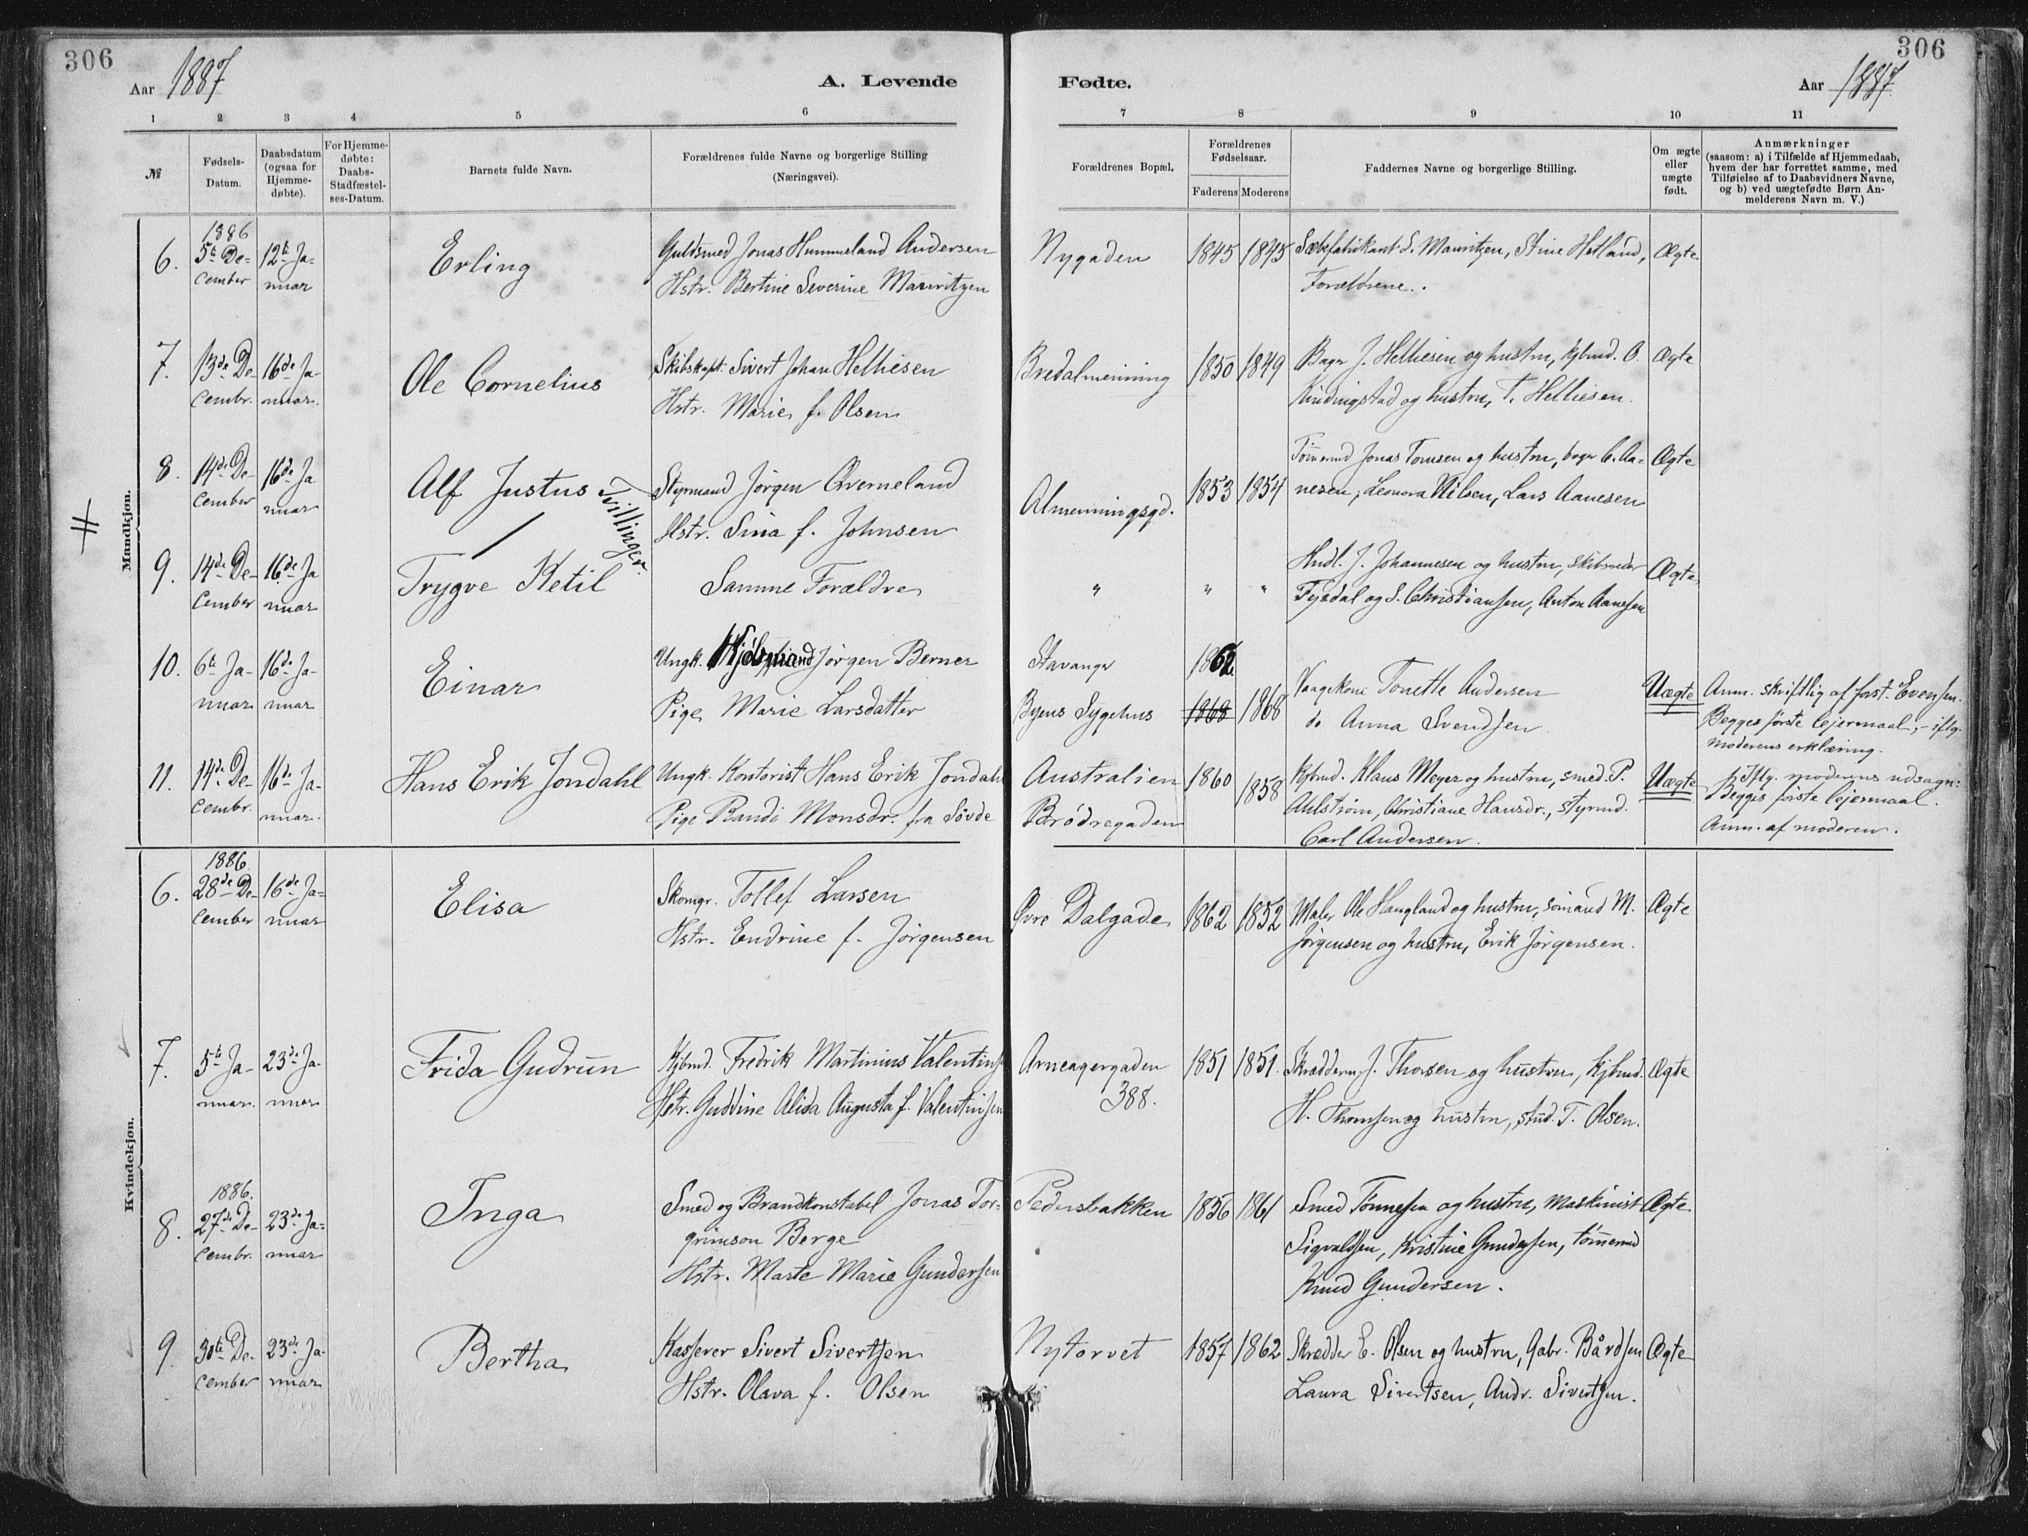 306
Aar 1887
A. Levende
1 2 3 4 5 6
№
Fødsels-
Datum.
Daabsdatum
(ogsaa for
Hjemme-
døbte).
For Hjemme-
døbte:
Daabs-
Stadfæstel-
ses-Datum.
Barnets fulde Navn.
Forældrenes fulde Navne og borgerlige Stilling
(Næringsvei).
306
Fødte.
Aar 1887
7 8 9 10 11
Forældrenes Bopæl.
Forældrenes
Fødselsaar.
Faderens Moderens
Faddernes Navne og borgerlige Stilling.
Om ægte
eller
uægte
født.
Anmærkninger
(saasom: a) i Tilfælde af Hjemmedaab,
hvem der har forrettet samme, med
Tilføielse af to Daabsvidners Navne,
og b) ved uægtefødte Børn An-
melderens Navn m. V.)
Mandkjøn.
1886
6. 5te De- 12te Ja- Erling Guldsmed Jonas Hummeland Andersen Nygaden 1845 1845 Sæbefabrikant S. Mauritzen, Stine Hetland, Ægte
cember nuar Hstr. Bertine Severine Mauritzen Forældrene.
7. 13de De- 16de Ja- Ole Cornelius Skibskapt. Sivert Johan Helliesen Bredalmenning 1850 1849 Bager J. Helliesen og hustru, kjbmd. O. Ægte
cembr. nuar. Hstr. Marie f. Olsen Kindingstad og hustru, T. Helliesen.
8. 14de De- 16de Ja Alf Justus Tvillinger. Styrmand Jørgen Qverneland Almenningsgd. 1853 1854 Tømmermd Jonas Tomsen og hustru, bager C. Aa- Ægte
cember nuar Hstr. Sina f. Johnsen nesen, Leonora Nilsen, Lars Aanesen
9. 14de De- 16de Ja Trygve Ketil Samme Forældre " " " Hndl. J. Johannesen og hustru, skibsreder Ægte
cember nuar Tysdal og S. Christiansen, Anton Aanesen
10. 6te Ja- 16de Ja- Einar Ungk. Jørgen Berner Stavanger 1862 Vaagekone Tonette Andersen Uægte Anm. skriftlig af forst. Evensen.
nuar nuar Pige Marie Larsdatter Byens Sygehus 1868 1868 do Anna Svendsen Begges første lejermaal, - iflg.
moderens erklæring.
11. 14de De- 16de Ja- Hans Erik Jondahl Ungk. Kontorist Hans Erik Jondahl Australien 1860 1858 Kjbmd. Klaus Meyer og hustru, smed P. Uægte Iflg. moderens udsagn:
cembr. nuar. Pige Randi Monsdr. fra Søvde Brødregaden Ahlstrøm, Christiane Hansdr., styrmd. Begges første lejermaal.
Carl Andersen. Anm. af moderen.
Kvindekjøn.
1886
6. 28de De- 16de Ja- Elisa Skomgr. Tollef Larsen Øvre Dalgade 1862 1852 Maler Ole Haugland og hustru, sømand M. Ægte
cember nuar Hstr. Endrine f. Jørgensen Jørgensen og hustru, Erik Jørgensen.
7. 5te Ja- 23de Ja- Frida Gudrun Kjbmd. Fredrik Martinius Valentins Arneagergaden 1851 1851. Skrædderm. J. Thorsen og hustru, kjbmd. Ægte
nuar. nuar Hstr. Guddine Alida Augusta f. Valentinsen 388. H. Thomsen og hustru, stud. T. Olsen.
1886.
8. 27de De- 23de Ja- Inga Smed og Brandkonstabel Jonas Tor- Pedersbakken 1856 1861 Smed Tønnesen og hustru, Maskinist Ægte
cembr. nuar grimson Berge Sigvaldsen, Kristine Gundersen, tømmermd
Hstr. Marte Marie Gundersen Knud Gundersen.
9. 30te De- 23de Ja- Bertha Kasserer Sivert Sivertsen Nytorvet 1857 1862 Skrædder E. Olsen og hustru, Gabr. Bårdsen Ægte
cember nuar Hstr. Olava f. Olsen Laura Sivertsen, Andr. Sivertsen.